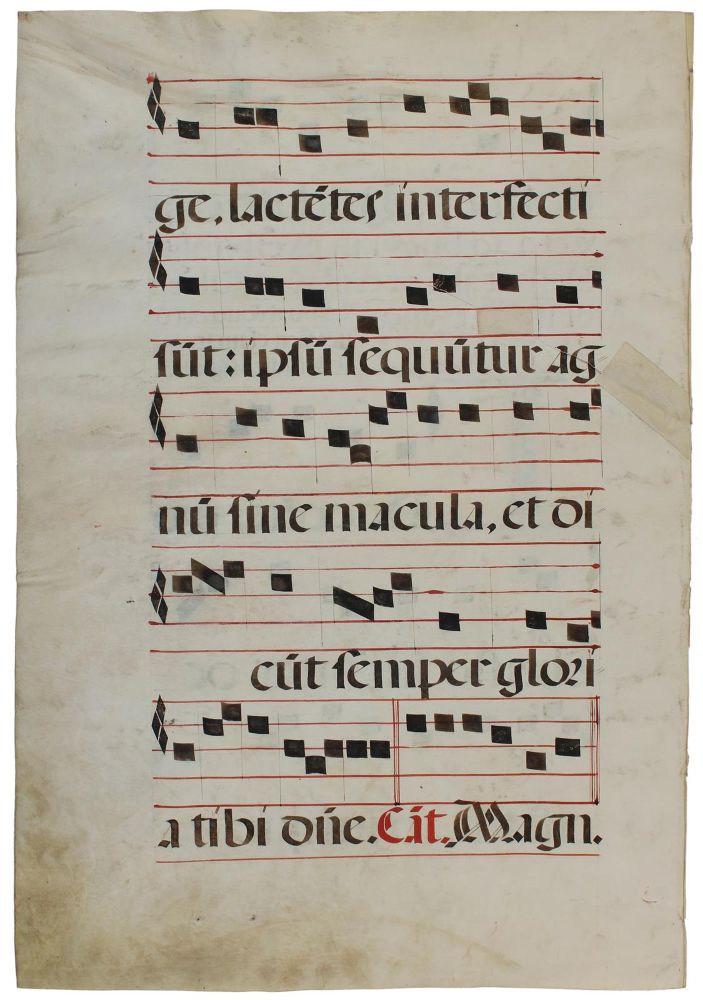 ge, lactētes interfecti
sūt: ipsū sequūtur ag
nū sine macula, et di
cūt semper glori
a tibi dn̄e. Cāt. Magn.